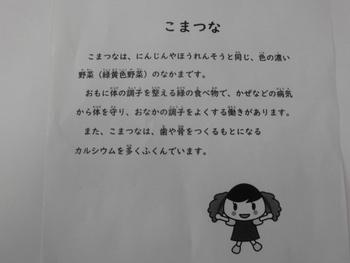 こまつな
こまつなは、にんじんやほうれんそうと同じ、色の濃い
野菜（緑黄色野菜）のなかまです。
おもに体の調子を整える緑の食べ物で、かぜなどの病気
から体を守り、おなかの調子をよくする働きがあります。
また、こまつなは、歯や骨をつくるもとになる
カルシウムを多くふくんでいます。